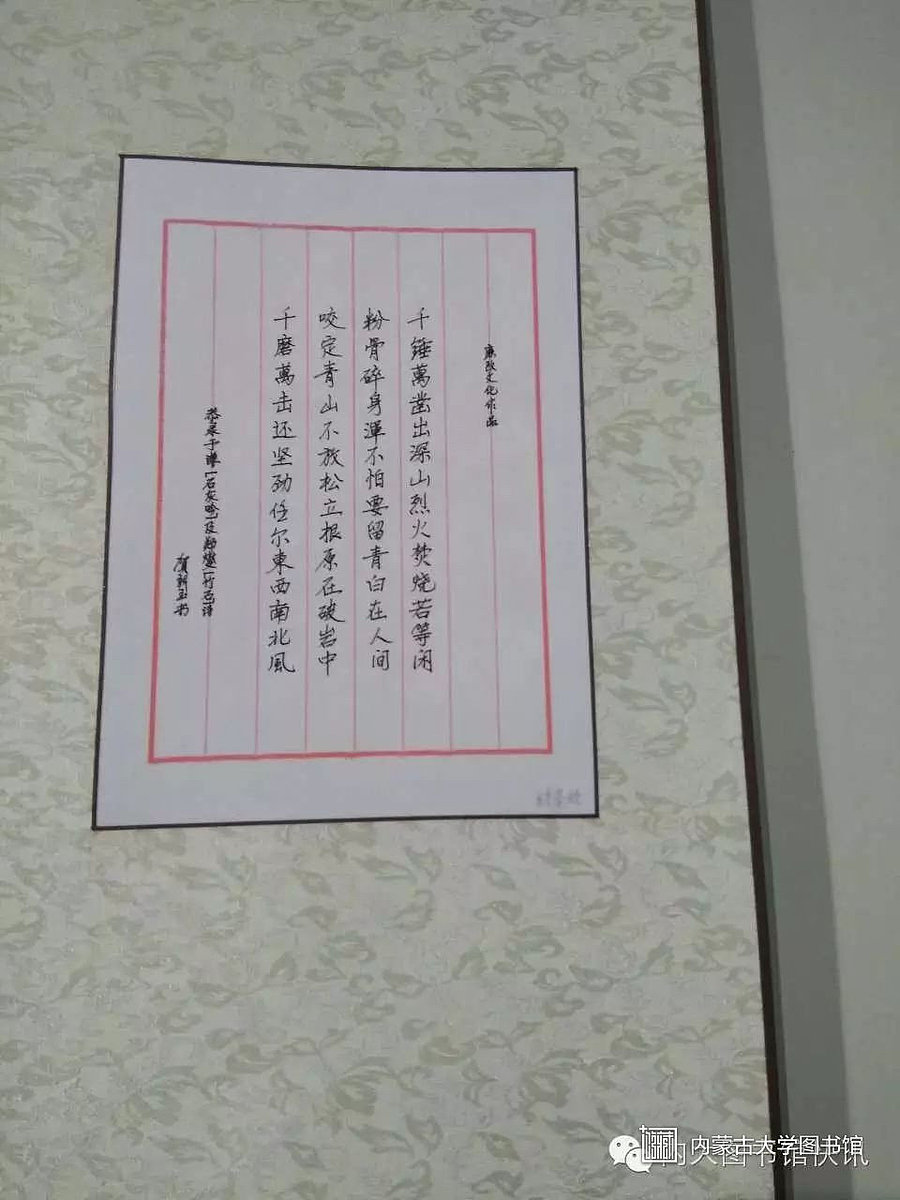 廉政文化作品
千錘萬凿出深山烈火焚烧若等闲
粉骨碎身渾不怕要留青白在人间
咬定青山不放松立根原在破岩中
千磨萬击还坚劲任尔東西南北風
恭录于谦「石灰吟」及郑燮「竹石」诗
内蒙古大学图书馆
内大图书馆快讯